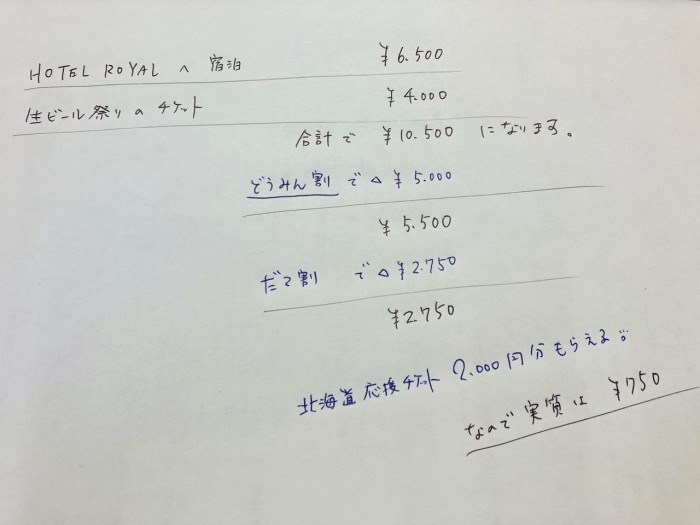 HOTEL ROYAL へ 宿泊 ¥6.500
生ビール祭りのチケット ¥4.000
合計で ¥10.500 になります。
どうみん割 で △ ¥5.000
¥5.500
だて割 で △ ¥2.750
¥2.750
北海道応援チケット 2.000円分もらえる
なので実質は ¥750